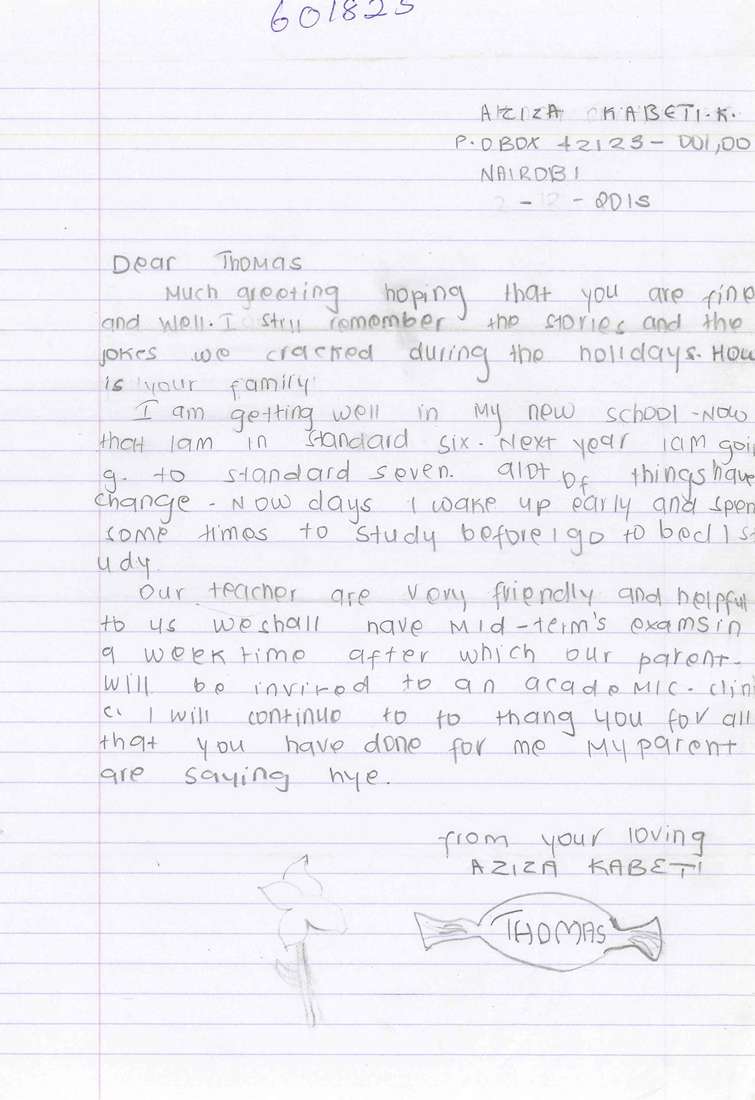 601825
AZIZA KABETI.K.
P.O BOX 42123 - 001,00
NAIROBI
2 - 12 - 2015
Dear Thomas
Much greeting hoping that you are fine
and well. I still remember the stories and the
jokes we cracked during the holidays. How
is your family
I am getting well in My new school - Now
that Iam in standard six. Next year iam goin
g. to standard seven. alot of things have
change - Now days I wake up early and spen
some times to study before I go to bed I st
udy.
Our teacher are very friendly and helpful
to us we shall have Mid-term's exams in
a week time after which our parent-
will be invired to an acadeMIC. clini
c. I will continue to to thang you for all
that you have done for me My parent
are saying hye.
from your loving
AZIZA KABETI
THOMAS